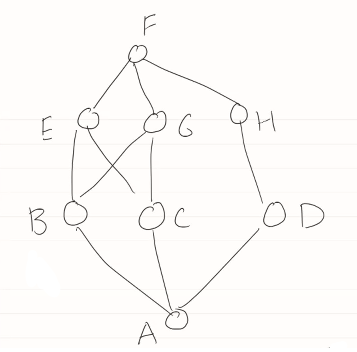 F
E G H
B C D
A